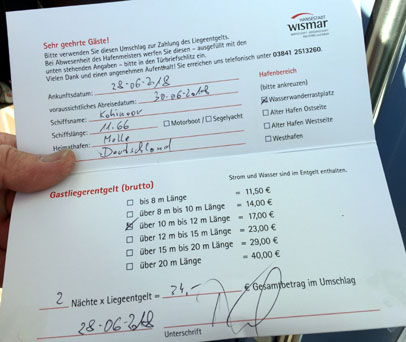 HANSESTADT
wismar
Sehr geehrte Gäste!
Bitte verwenden Sie diesen Umschlag zur Zahlung des Liegeentgelts.
Bei Abwesenheit des Hafenmeisters werfen Sie diesen - ausgefüllt mit den
unten stehenden Angaben - bitte in den Türbriefschlitz ein.
Vielen Dank und einen angenehmen Aufenthalt! Sie erreichen uns telefonisch unter 03841 2513260.
Ankunftsdatum: 28-06-2018
voraussichtliches Abreisedatum: 30-06-2018
Schiffsname: Kohinoor
Schiffslänge: 11.66 Motorboot / Segelyacht
Heimathafen: Mölle
Deutschland
Hafenbereich
(bitte ankreuzen)
Wasserwanderrastplatz
Alter Hafen Ostseite
Alter Hafen Westseite
Westhafen
Gastliegerentgelt (brutto)
Strom und Wasser sind im Entgelt enthalten.
bis 8 m Länge = 11,50 €
über 8 m bis 10 m Länge = 14,00 €
über 10 m bis 12 m Länge = 17,00 €
über 12 m bis 15 m Länge = 23,00 €
über 15 m bis 20 m Länge = 29,00 €
über 20 m Länge = 40,00 €
2 Nächte x Liegeentgelt = 34,- € Gesamtbetrag im Umschlag
28-06-2018
Unterschrift